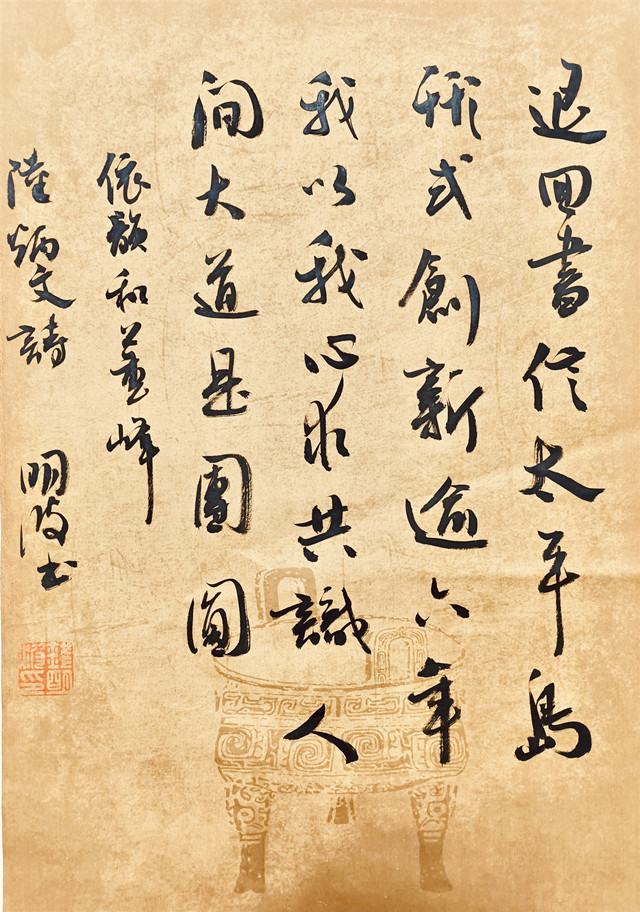 退回書信太平島
形式創新逾六年
我以我心求共識人
間大道是團圓
依韻和峰
陸炳文詩 明波书